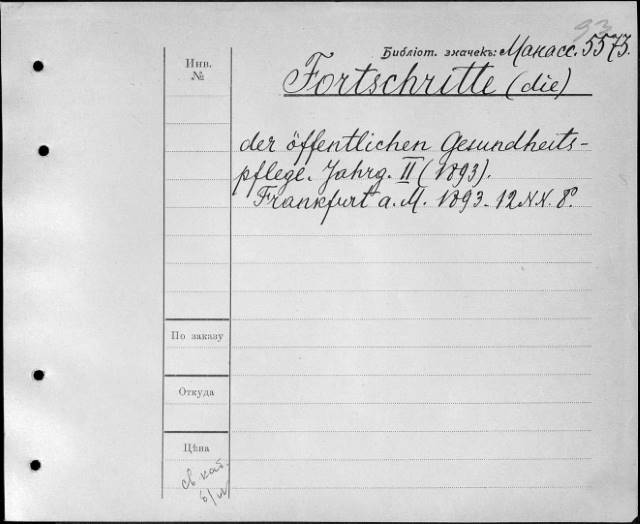 93
Библіот. значекъ: Манасс. 5573.
Инв.
№
Fortschritte (die)
der öffentlichen Gesundheits-
pflege. Jahrg. II (1893).
Frankfurt a. M. 1893. 12 NN. 8º
По заказу
Откуда
Цѣна
св каб.